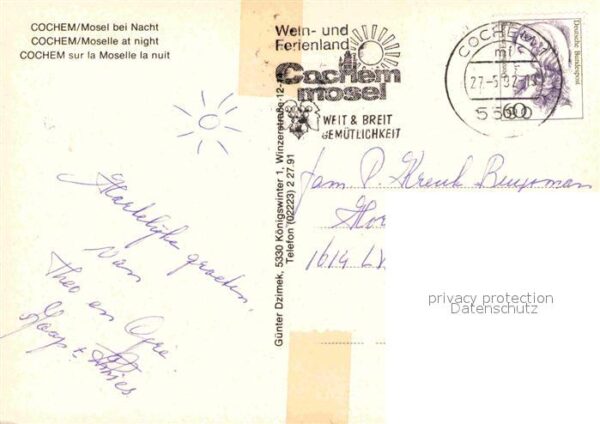 COCHEM/Mosel bei Nacht
COCHEM/Moselle at night
COCHEM sur la Moselle la nuit
Wein- und
Ferienland
Cochem
mosel
WEIT & BREIT
GEMÜTLICHKEIT
COCHEM
5590
60
Deutsche Bundespost
Günter Dzimek, 5330 Königswinter 1, Winzerstraße 12
Telefon (02223) 2 27 91
Hartelijke groeten,
van
Theo en
Jaap &
Fam P.
1614 LV
privacy protection
Datenschutz